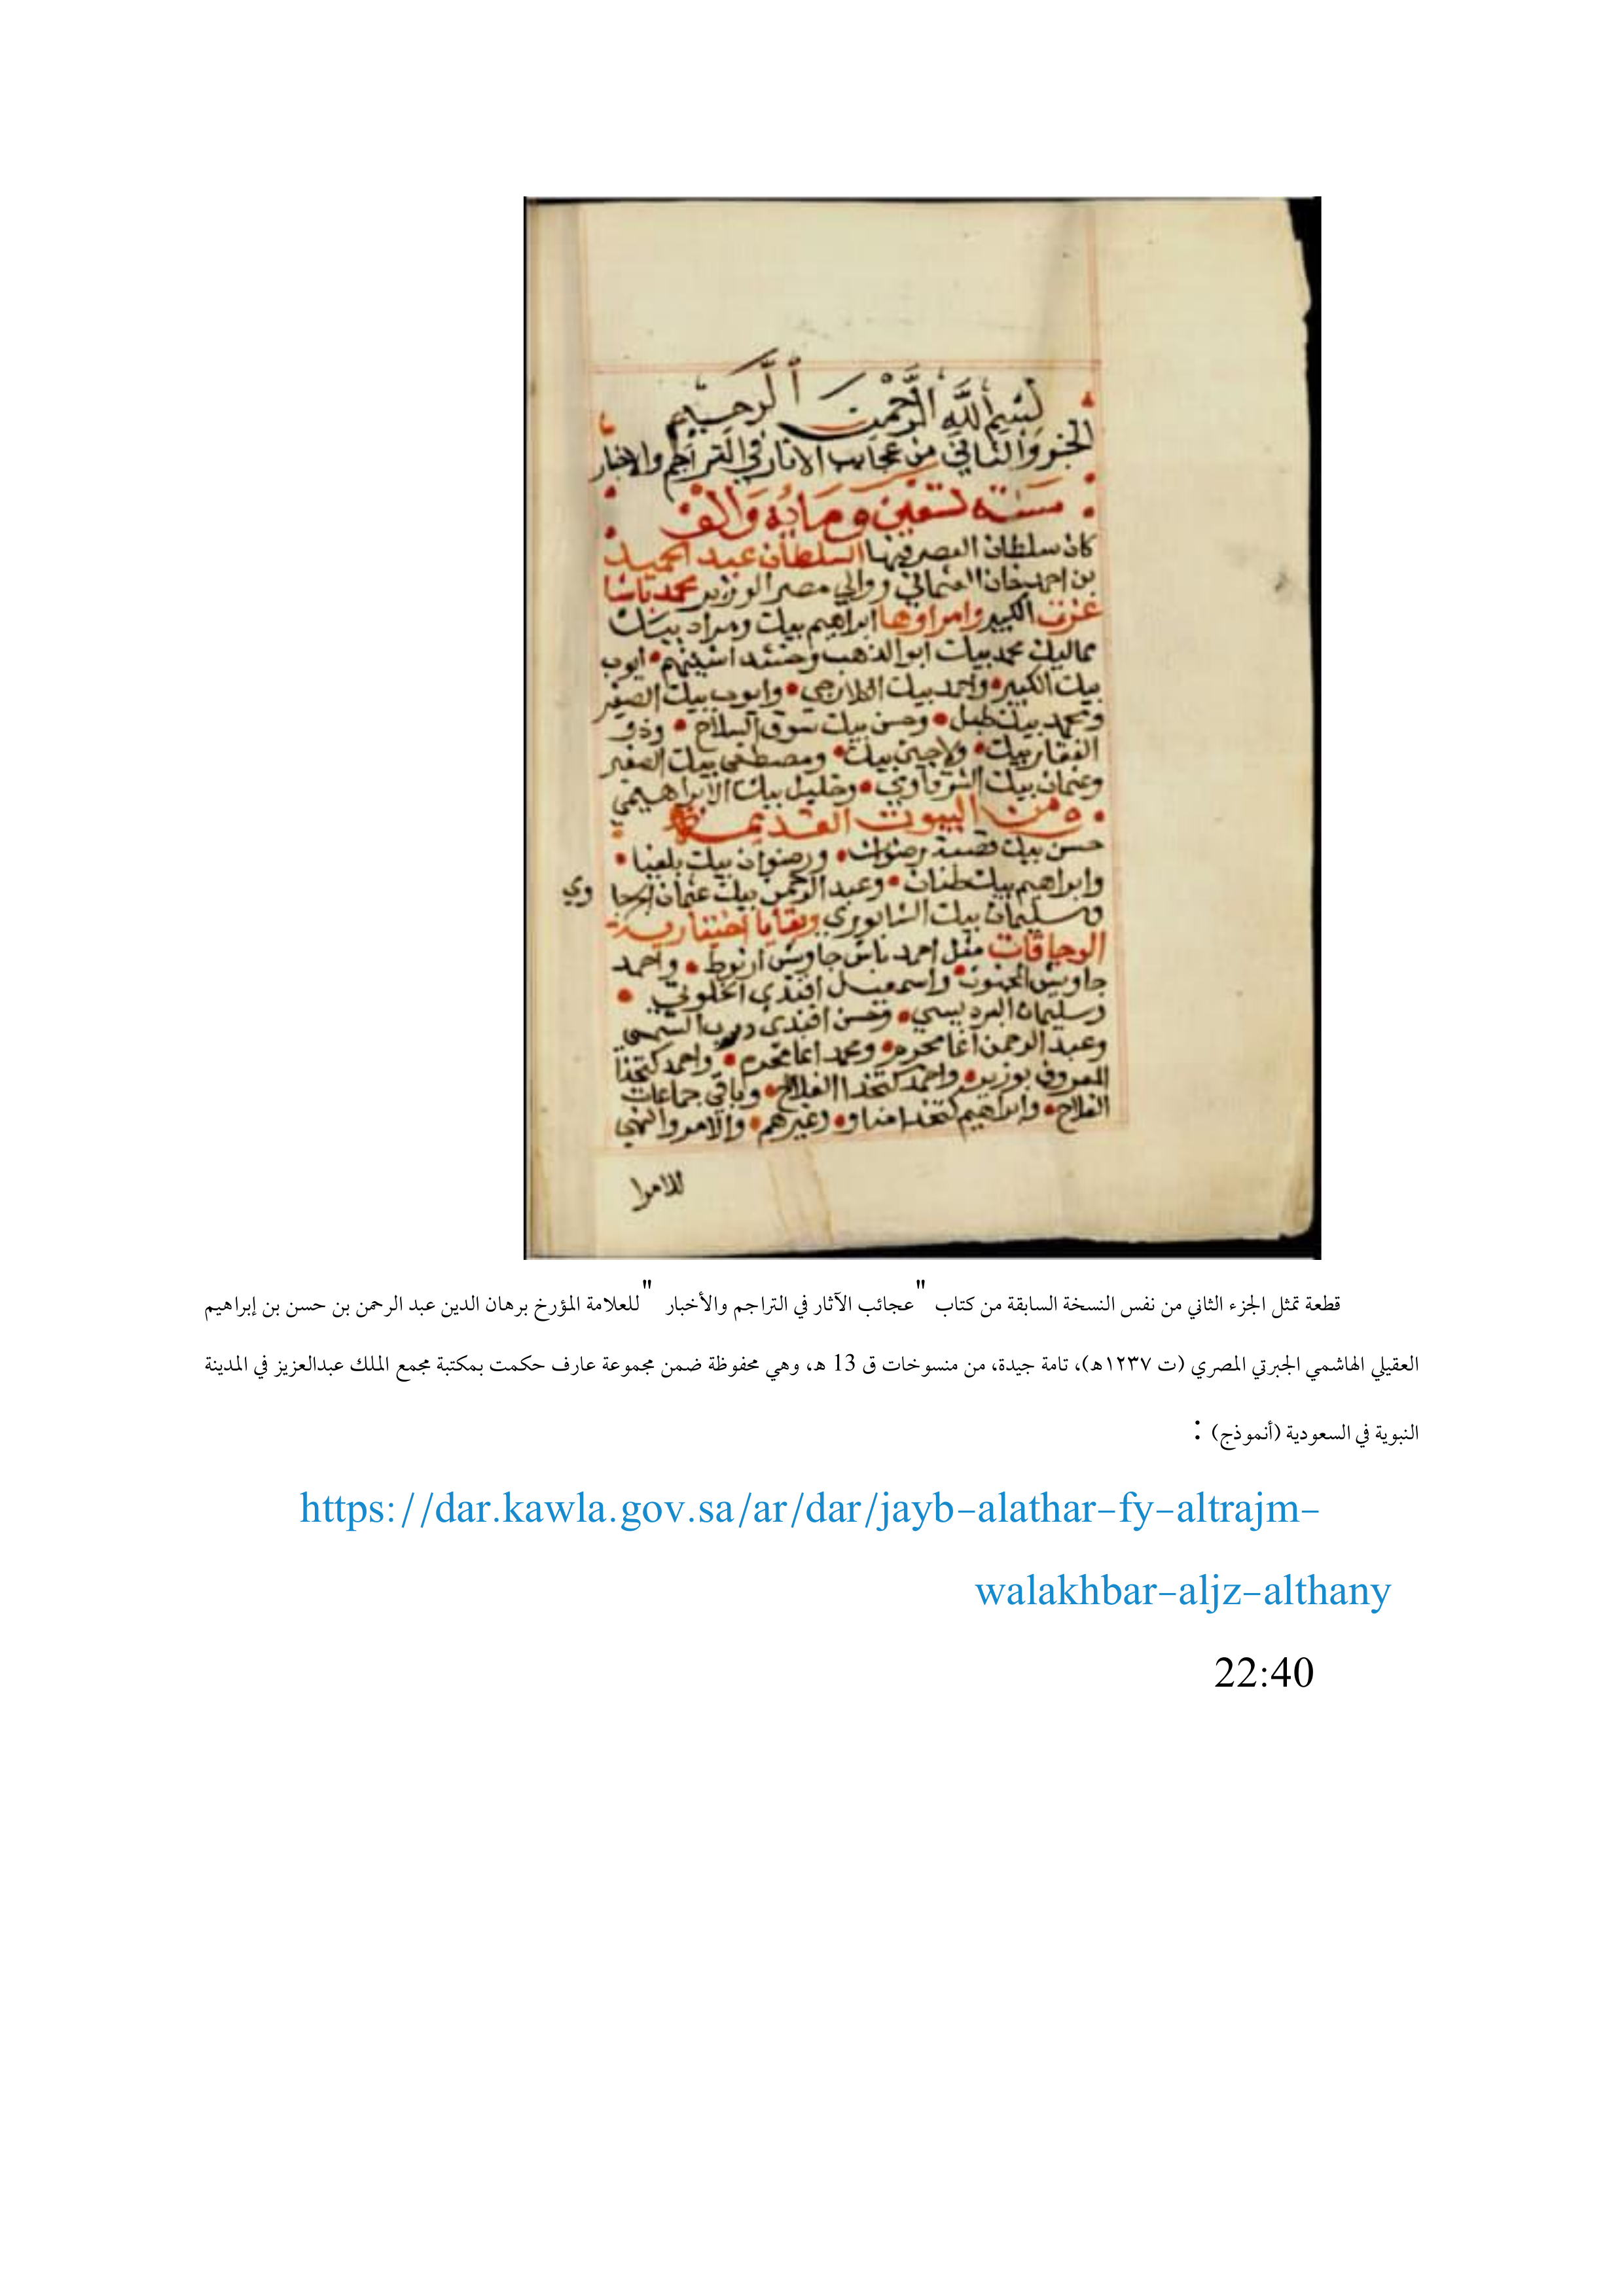 بسم الله الرحمن الرحيم
الجزو الثاني من عجايب الاثار في التراجم والاخبار
سنة تسعين وماية والف
كان سلطان العصر فيها السلطان عبد الحميد
بن احمد خان العثماني ووالي مصر الوزير محمد باشا
عزت الكبير وامراوها ابراهيم بيك ومراد بيك
مماليك محمد بيك ابو الذهب وخشداشينهم • ايوب
بيك الكبير • واحمد بيك الكلارجي • وايوب بيك الصغير
ومحمد بيك طبل • وحسن بيك سوق السلاح • وذو
الفقار بيك • ولاجين بيك • ومصطفى بيك الصغير
وعثمان بيك الشرقاوي • وخليل بيك الابراهيمي
ومن البيوت القديمة
حسن بيك قصبة رضوان • ورضوان بيك بلفيا •
وابراهيم بيك طنان • وعبد الرحمن بيك عثمان الجرجا وي
وسليمان بيك الشابوري وبقايا اختيارية
الوجاقات مثل احمد باش جاويش ارنوط • واحمد
جاويش المجنون • واسمعيل افندي الخلوتي •
وسليمان البرديسي • وحسن افندي درب الشمسي
وعبد الرحمن اغا محرم • ومحمد اغا محرم • واحمد كتخدا
المعروف بوزير • واحمد كتخدا الفلاح • وباقي جماعات
الفلاح • وابراهيم كتخدا مناو • وغيرهم • والامر والنهي
للامرا
قطعة تمثل الجزء الثاني من نفس النسخة السابقة من كتاب "عجائب الآثار في التراجم والأخبار" للعلامة المؤرخ برهان الدين عبد الرحمن بن حسن بن إبراهيم
العقيلي الهاشمي الجبرتي المصري (ت ١٢٣٧ه)، تامة جيدة، من منسوخات ق 13 ه، وهي محفوظة ضمن مجموعة عارف حكمت بمكتبة مجمع الملك عبدالعزيز في المدينة
النبوية في السعودية (أنموذج) :
https://dar.kawla.gov.sa/ar/dar/jayb-alathar-fy-altrajm-
walakhbar-aljz-althany
22:40